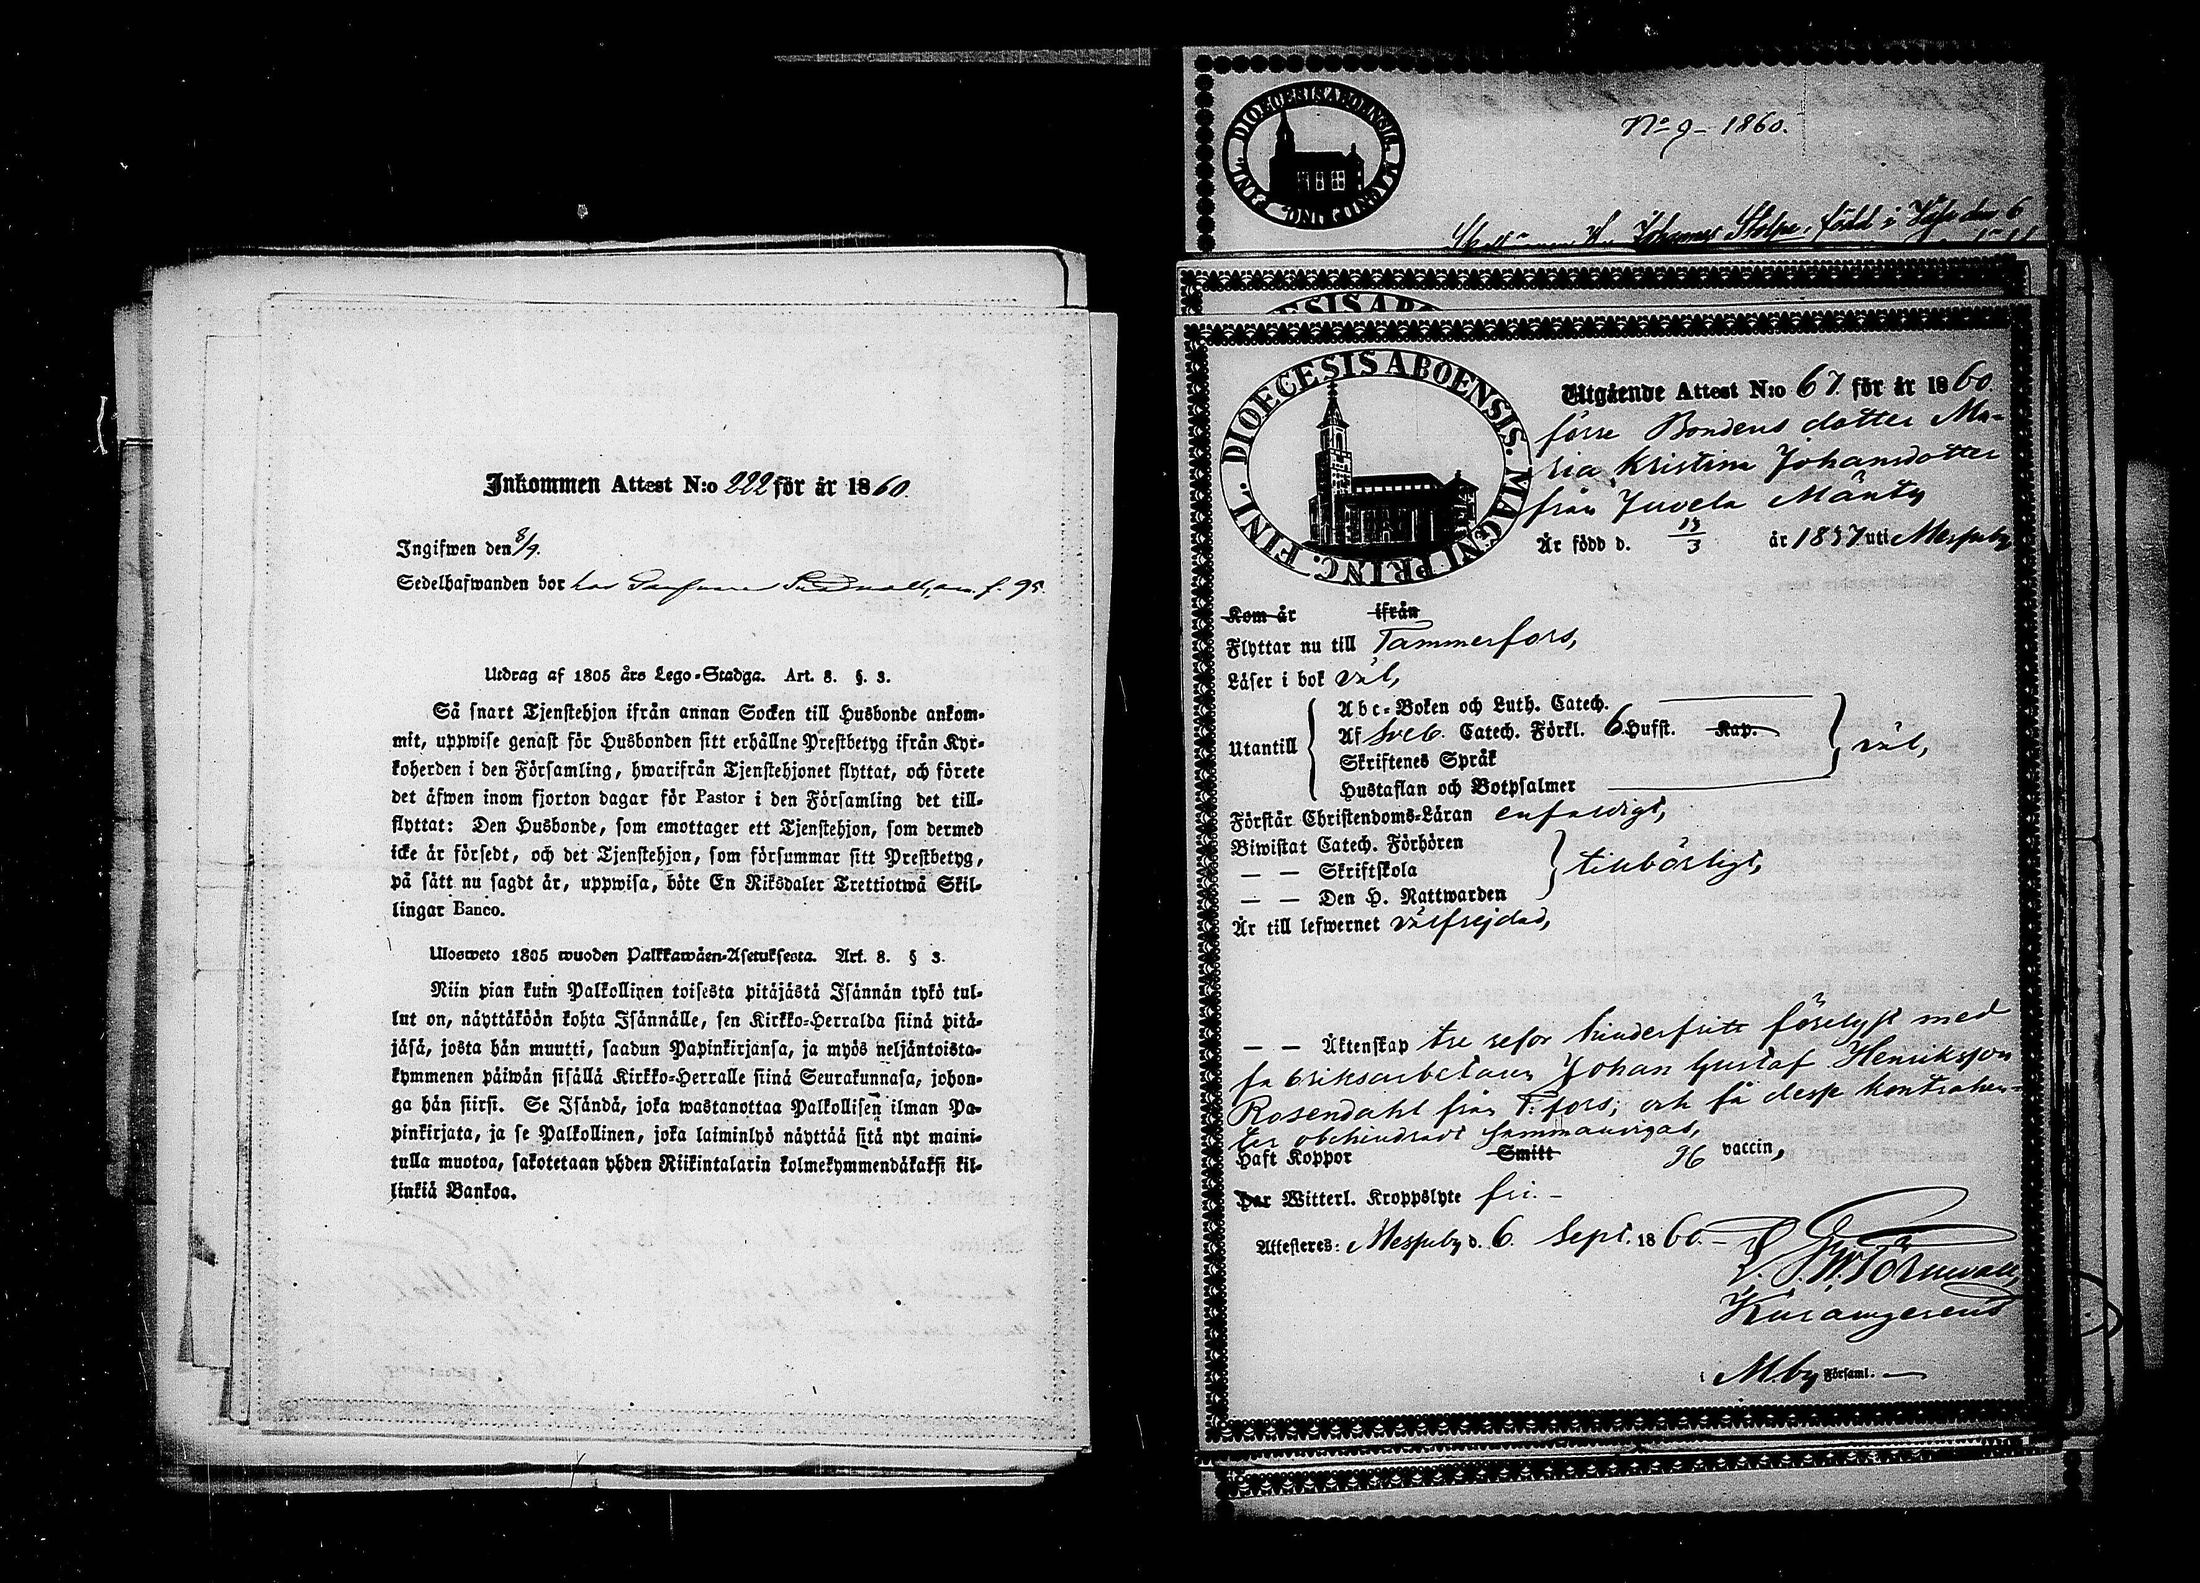 Inkommen Attest N:o 222 för år 1860.
Ingifwen den 8/9.
Sedelhafwanden bor hos f. 95.
Utdrag af 1805 års Lego-Stadga. Art. 8. §. 3.
Så snart Tjenstehjon ifrån annan Socken till Husbonde ankom-
mit, uppwise genast för Husbonden sitt erhållne Prestbetyg ifrån Kyr-
koherden i den Församling, hwarifrån Tjenstehjonet flyttat, och förete
det äfwen inom fjorton dagar för Pastor i den Församling det till-
flyttat: Den Husbonde, som emottager ett Tjenstehjon, som dermed
icke är försedt, och det Tjenstehjon, som försummar sitt Prestbetyg,
på sätt nu sagdt är, uppwisa, böte En Riksdaler Trettiotwå Skil-
lingar Banco.
Ulosweto 1805 wuoden Palkkawäen-Asetuksesta. Art. 8. § 3.
Niin pian kuin Palkollinen toisesta pitäjästä Isännän tykö tul-
lut on, näyttäköön kohta Isännälle, sen Kirkko-Herralda siinä pitä-
jäsä, josta hän muutti, saadun Papinkirjansa, ja myös neljäntoista-
kymmenen päiwän sisällä Kirkko-Herralle siinä Seurakunnasa, johon-
ga hän siirsi. Se Isändä, joka wastanottaa Palkollisen ilman Pa-
pinkirjata, ja se Palkollinen, joka laiminlyö näyttää sitä nyt maini-
tulla muotoa, sakotetaan yhden Riikintalarin kolmekymmendäkaksi kil-
linkiä Bankoa.
DIOECESIS ABOENSIS. MAGNI PRINC. FINL.
No 9 – 1860.
Johannes Stolpe, född i
DIOECESIS ABOENSIS. MAGNI PRINC. FINL.
Utgående Attest N:o 67. för år 1860.
förre Bondens dotter Ma-
ria Kristina Johansdotter
från Juvela Mänty
Är född d. 13/3 år 1837 uti Messuby
Kom år ifrån
Flyttar nu till Tammerfors,
Läser i bok väl,
Utantill
Abc-Boken och Luth. Catech.
Af Sveb. Catech. Förkl. 6 Hufst. Kap.
Skriftenes Språk
Hustaflan och Botpsalmer
väl,
Förstår Christendoms-Läran enfaldigt,
Biwistat Catech. Förhören
— — Skriftskola
— — Den H. Nattwarden
tillbörligt,
Är till lefwernet välfrejdad,
— — Äktenskap tre resor hinderfritt förelyst med
fabriksarbetaren Johan Gustaf Henriksson
Rosendahl från T:fors; och få dessa kontrahen-
ter obehindradt sammanvigas,
Haft Koppor Smitt vaccin,
Har Witterl. Kroppslyte fri. –
Attesteres: Messuby d. 6. Sept. 1860. –
Törnwall,
Kür angerend
i M:by Församl. —